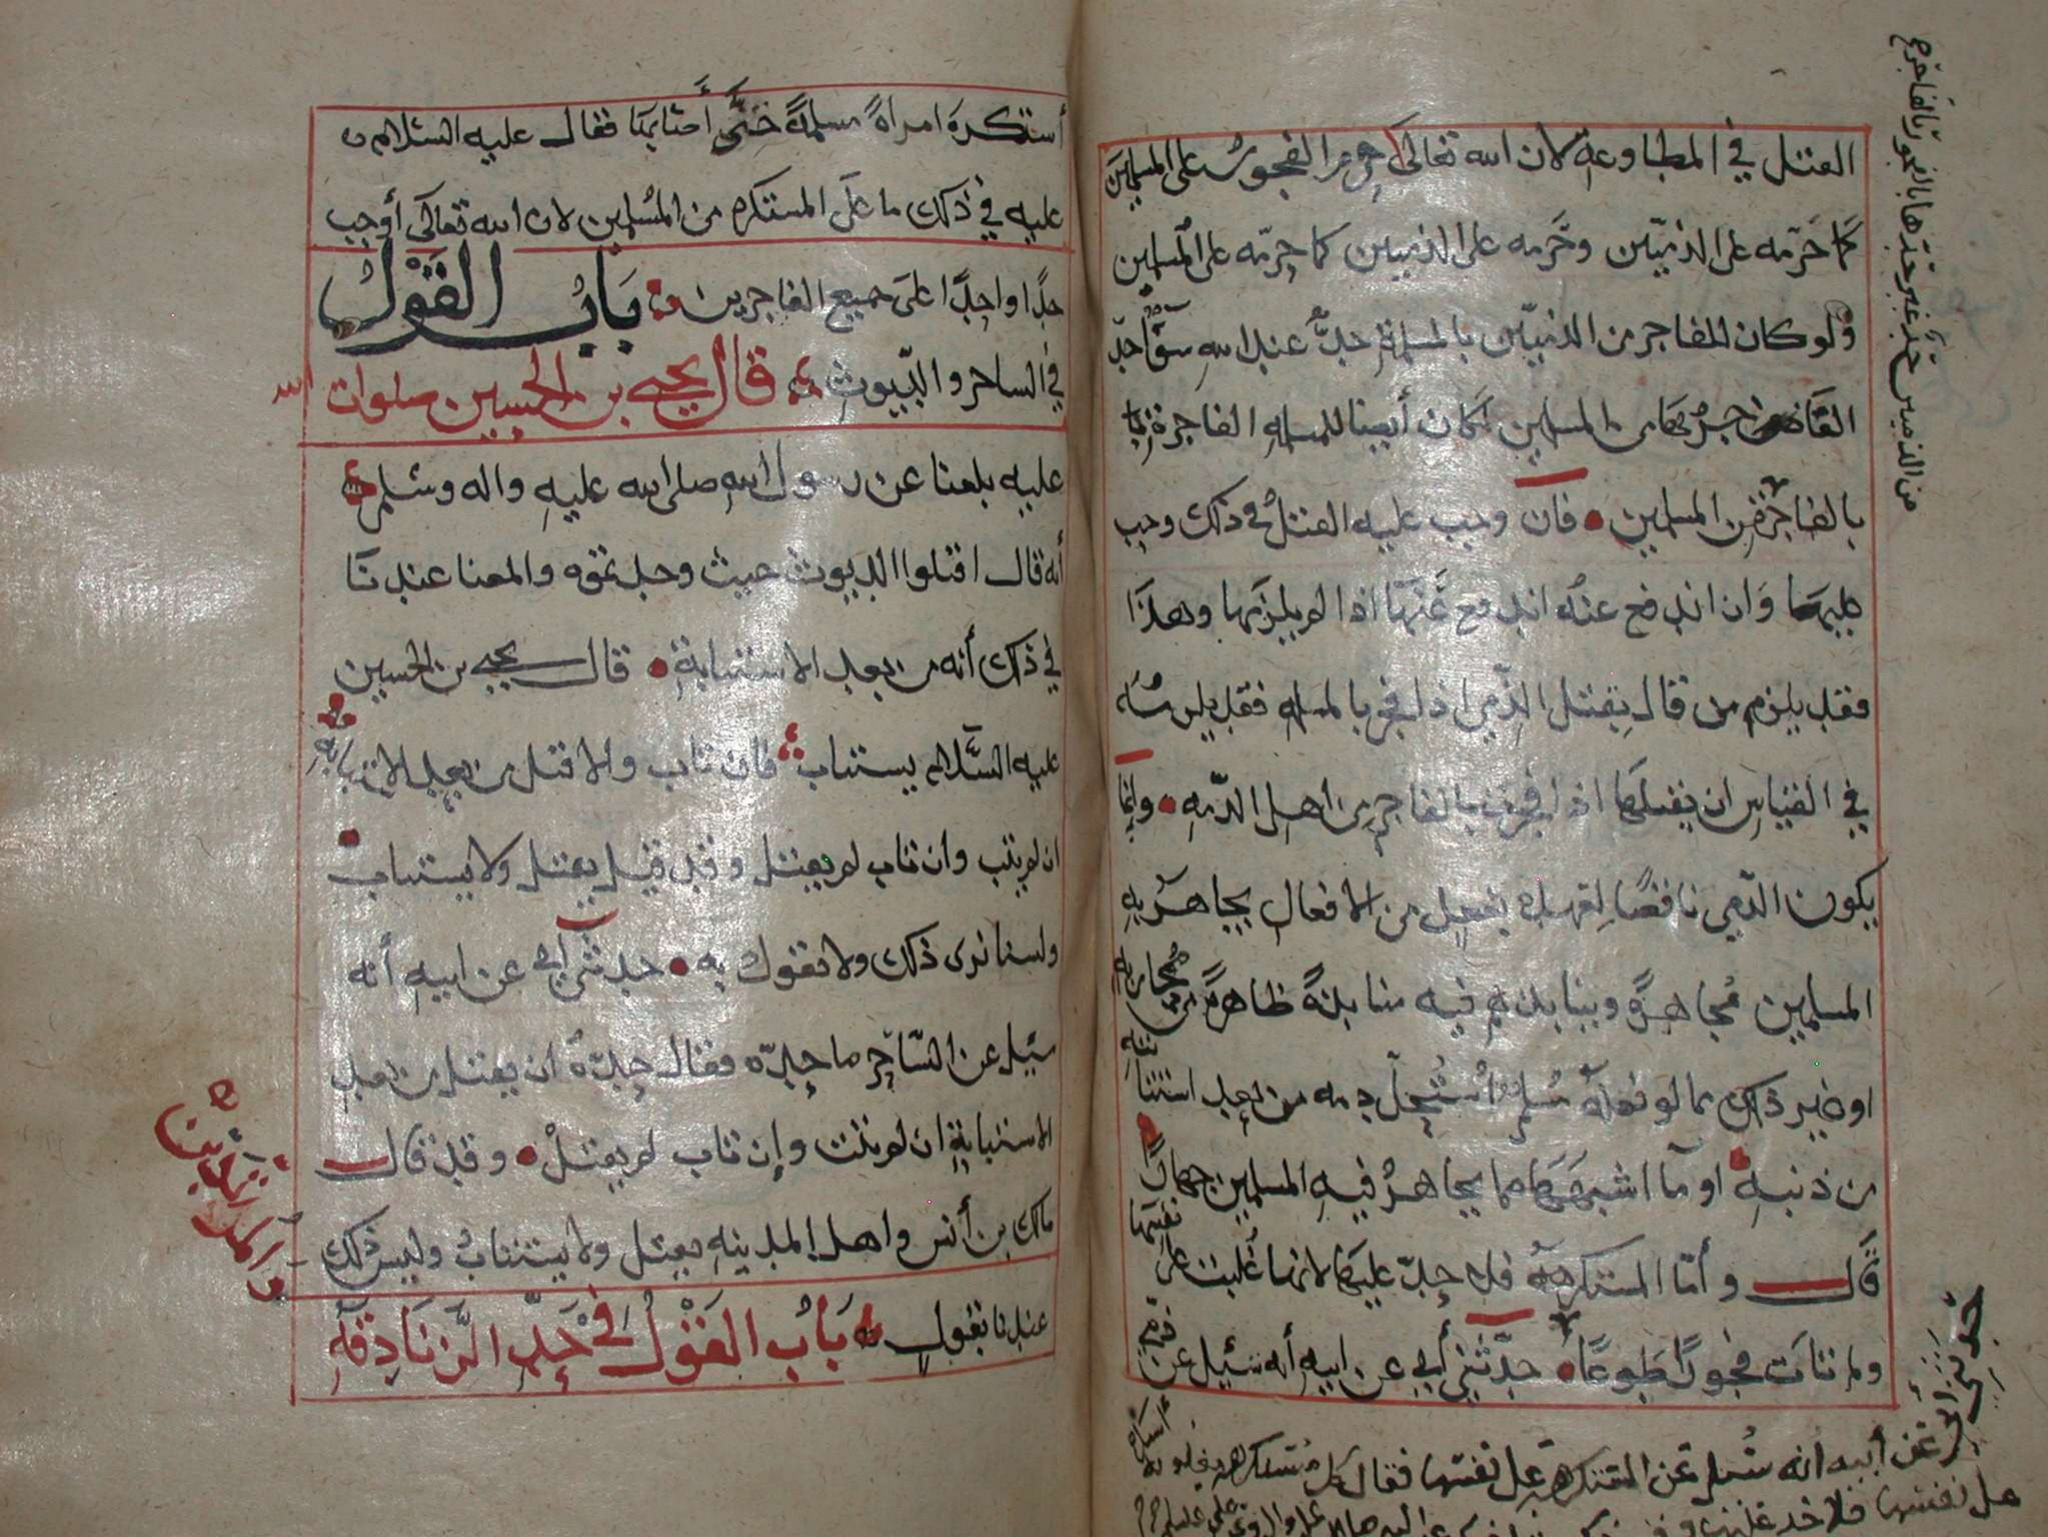 القتل في المطاوعة لان الله تعالى حرم الفجور على المسلمين
كما حرّمه على الذميّين وحرمه على الذميين كما حرّمه على المسلمين
ولو كان للفاجر من الذميّين بالمسلمة حدٌّ عند الله سوى حدّ
من المسلمين لكان أيضا للمسلمه الفاجرة
بالفاجر من المسلمين فان وجب عليه القتل في ذلك وجب
عليهما وان اندفع عنه اندفع عنها اذا لم يلزمها وهذا
فقد يلزم من قال بقتل الذّمي اذا فجر بالمسلمه فقد يلزمه
في القياس ان يقتلها اذا فجرت بالفاجر من اهل الذّمه وانما
يكون الذّمي ناقضًا لعهده بفعل من الافعال يجاهر به
المسلمين مُجاهرةً وينابذهم فيه منابذةً ظاهرةً
او غير ذلك مما لو فعله مسلمٌ استُحِلّ دمه من بعد استتا
من ذنبه او ما اشبهها مما يجاهر فيه المسلمين جهارًا
قال وأمّا المستكرهة فلا حدّ عليها لانها غُلبت على
نفسها
ولم تات فجورًا طوعًا حدّثني أبي عن ابيه أنه سُئل عن ذمّي
من الذميين حدّ غير حدّها بالفجور بالفاجر
حدثني أبي
عن أبيه انه سُئل عن المستكرهة على نفسها فقال كل مستكرهة
على نفسها فلا حد عليها
أستكره امراةً مسلمةً حتّى أصابها فقال عليه السلام
عليه في ذلك ما على المستكره من المسلمين لان الله تعالى أوجب
حدًا واحدًا على جميع الفاجرين بابُ القَوْلُ
في الساحر والدّيوث قال يحيى بن الحسين صلوات الله
عليه بلغنا عن رسول الله صلى الله عليه واله وسلم
أنه قال اقتلوا الديوث حيث وجدتموه والمعنا عندنا
في ذلك أنه من بعد الاستتابة قال يحيى بن الحسين
عليه السّلام يستتاب فان تاب والا قتل من بعد الاستتابه
ان لم يتب وان تاب لم يقتل وقد قيل يقتل ولا يستتاب
ولسنا نرى ذلك ولا نقول به حدثني أبي عن ابيه أنه
سُئل عن السّاحر ما حدّه فقال حدّه ان يقتل من بعد
الاستتابة ان لم يتب وإن تاب لم يقتل وقد قال
مالك بن أنس واهل المدينه يقتل ولا يستتاب وليس ذلك
عندنا بقول بَابُ القَوْلُ في حَدِّ الزَّنَادِقَةِ